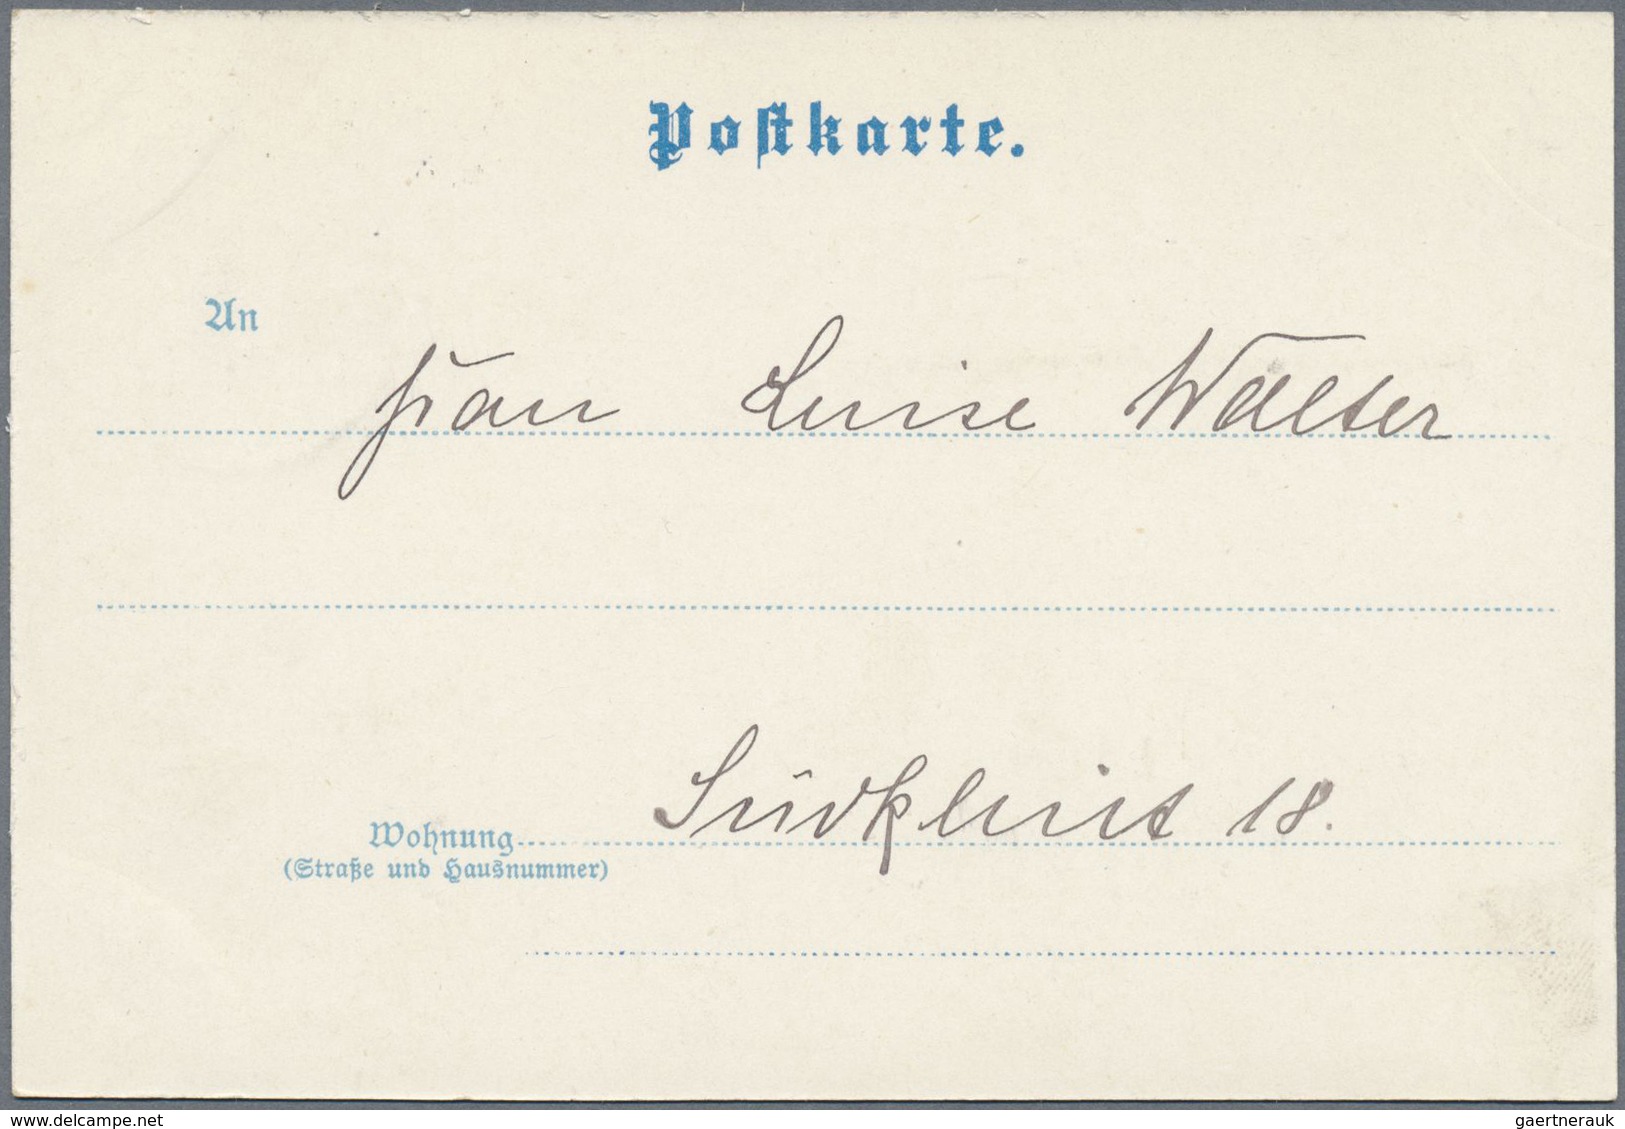 Postkarte.
An
Frau Luise Walter
Südklint 18.
Wohnung
(Straße und Hausnummer)
delcampe.net
gaertnerauk